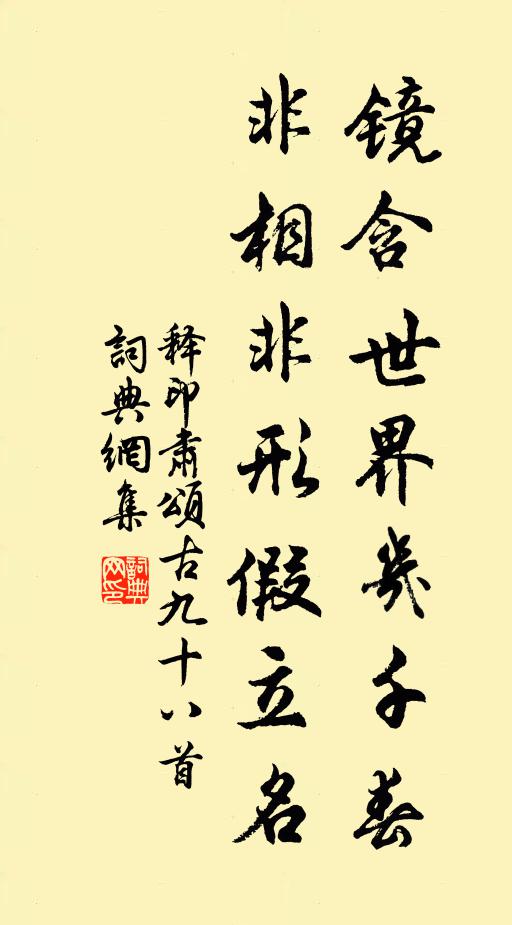 镜含世界幾千春
非相非形假立名
释印肅頌古九十八首
詞典網集
詞典网印